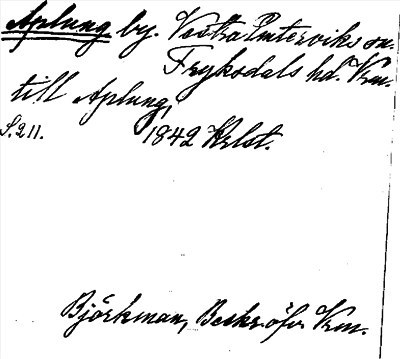 Aplung by. Västra Emterviks sn.
Fryksdals hd. Vrm.
till Aplung,
S. 211. 1842 Krlst.
Björkman, Beskr. öfv. Vrm.